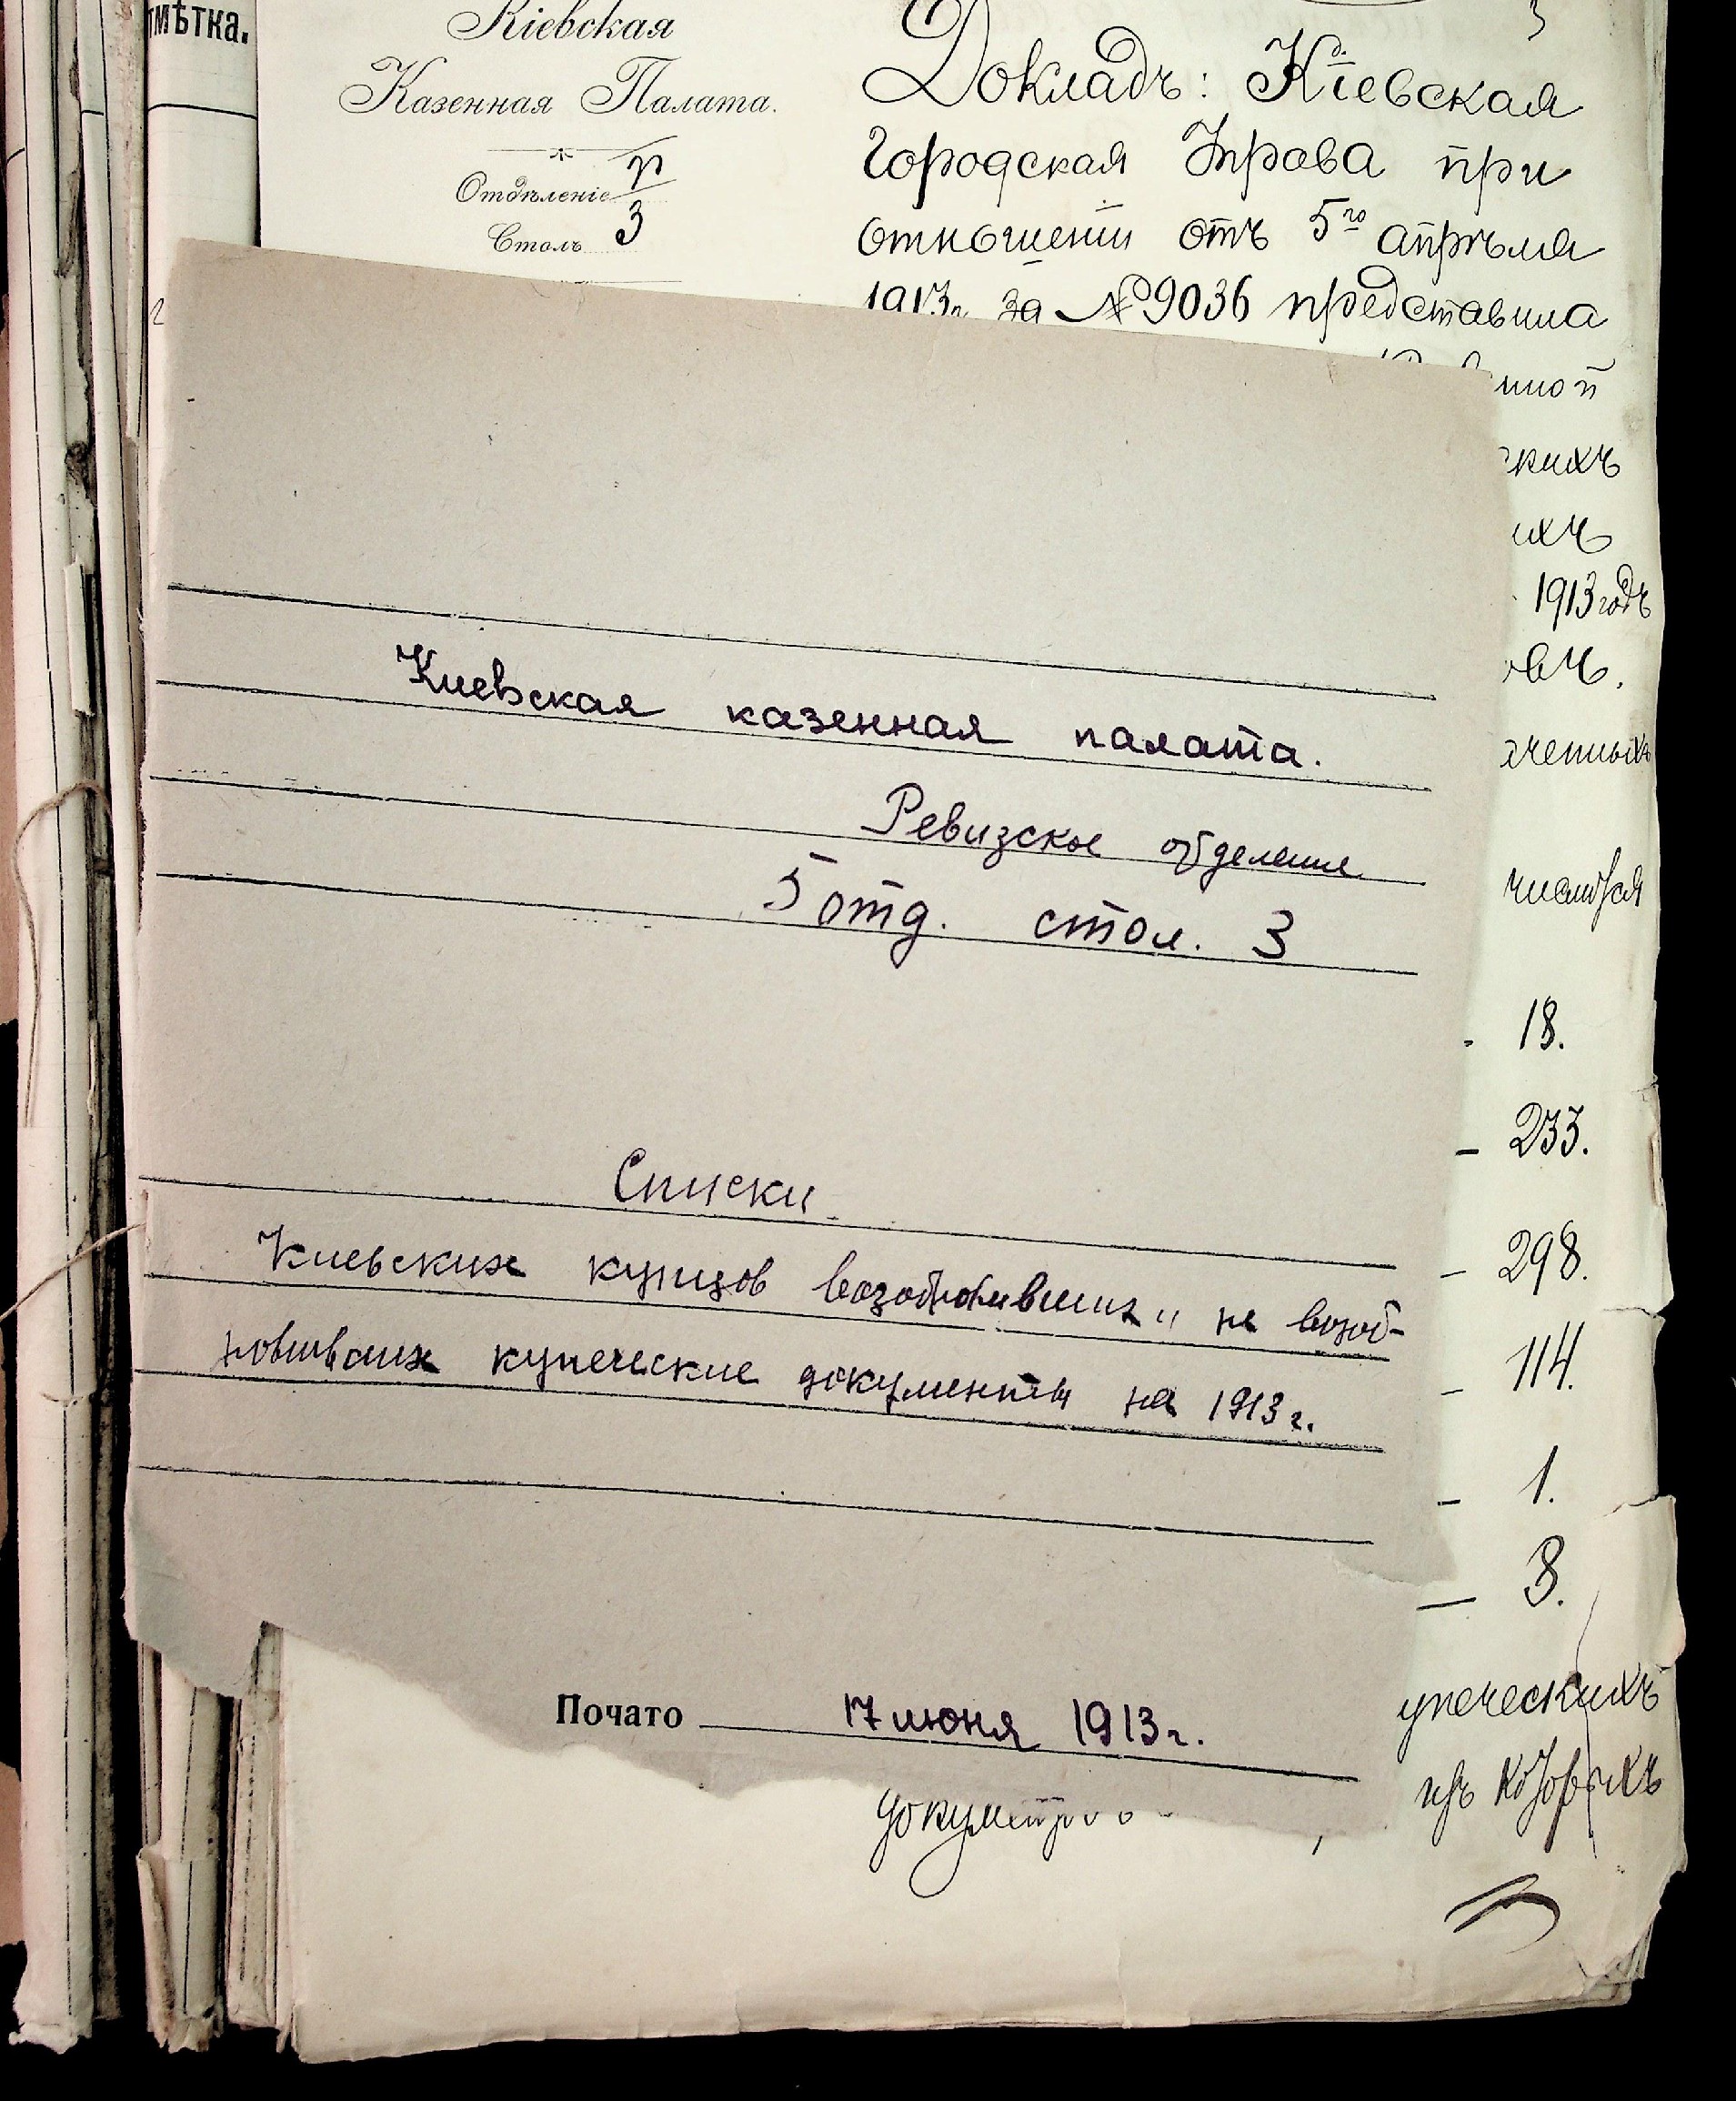 мѣтка.
Кіевская
Казенная Палата.
Отдѣленіе
Столъ 3
Докладъ: Кіевская
Городская Управа при
отношеніи отъ 5го апрѣля
1913г. за №9036 представила
нной
скихъ
ихъ
1913 годъ
овъ.
ченныхъ
числится
18.
233.
298.
114.
1.
3.
упеческихъ
документовъ изъ которыхъ
Киевская казенная палата.
Ревизское отделение
5 отд. стол. 3
Списки
Киевских купцов возобновивших и не возоб-
новивших купеческие документы на 1913 г.
Почато 17 июня 1913 г.